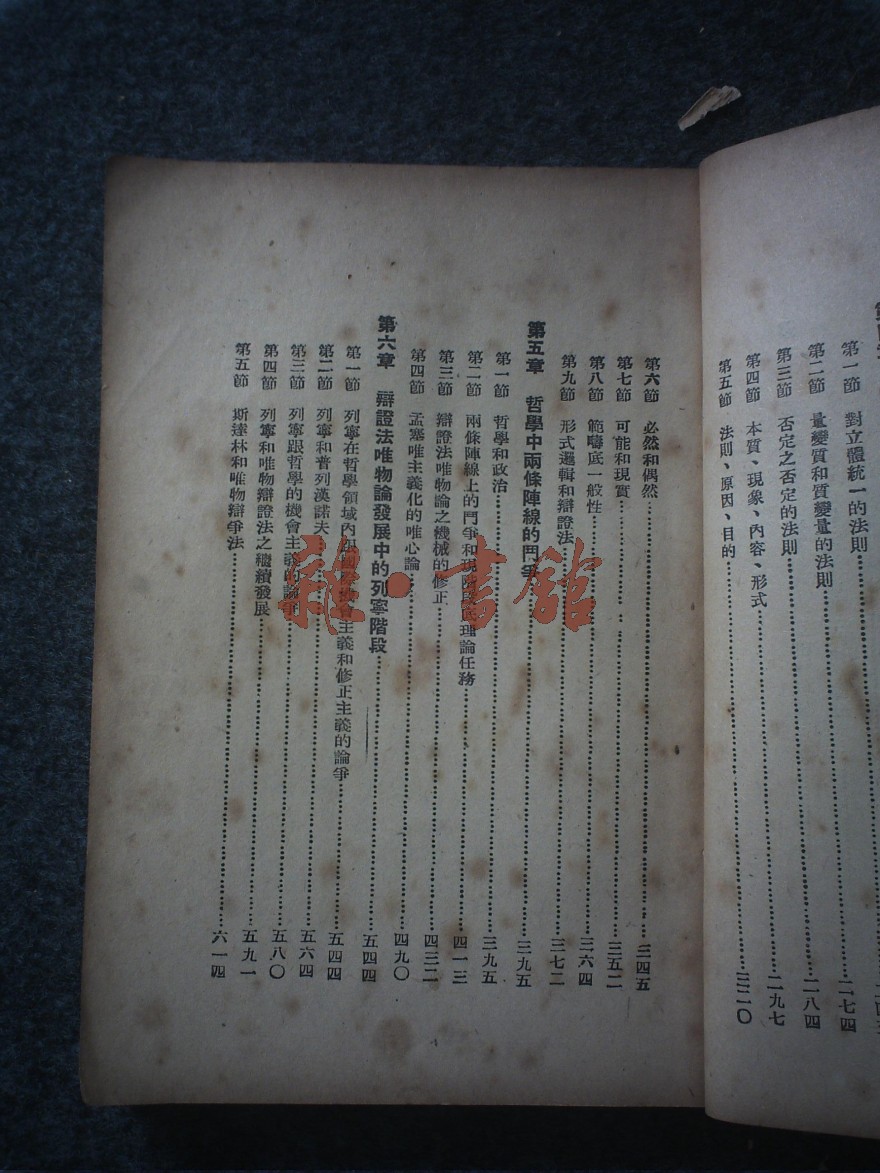 第一節 對立體統一的法則……二七四
第二節 量變質和質變量的法則……二八四
第三節 否定之否定的法則……二九七
第四節 本質、現象、內容、形式……
第五節 法則、原因、目的……三二〇
第六節 必然和偶然……三四五
第七節 可能和現實……三五二
第八節 範疇底一般性……三六四
第九節 形式邏輯和辯證法……三七二
第五章 哲學中兩條陣線的鬥爭……三九五
第一節 哲學和政治……三九五
第二節 兩條陣線上的鬥爭和現階段底理論任務……四一三
第三節 辯證法唯物論之機械的修正……四三二
第四節 孟塞唯主義化的唯心論……四九〇
第六章 辯證法唯物論發展中的列寧階段……五四四
第一節 列寧在哲學領域內跟 會主義和修正主義的論爭……五四四
第二節 列寧和普列漢諾夫……五六四
第三節 列寧跟哲學的機會主義的論爭……五八〇
第四節 列寧和唯物辯證法之繼續發展……五九一
第五節 斯達林和唯物辯爭法……六一四
雜·書館